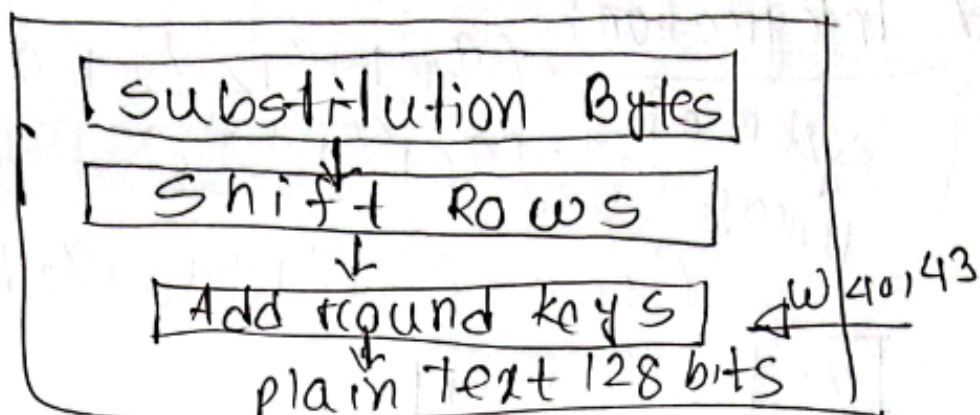 Substitution Bytes
Shift Rows
Add round keys
W 40,43
plain text 128 bits